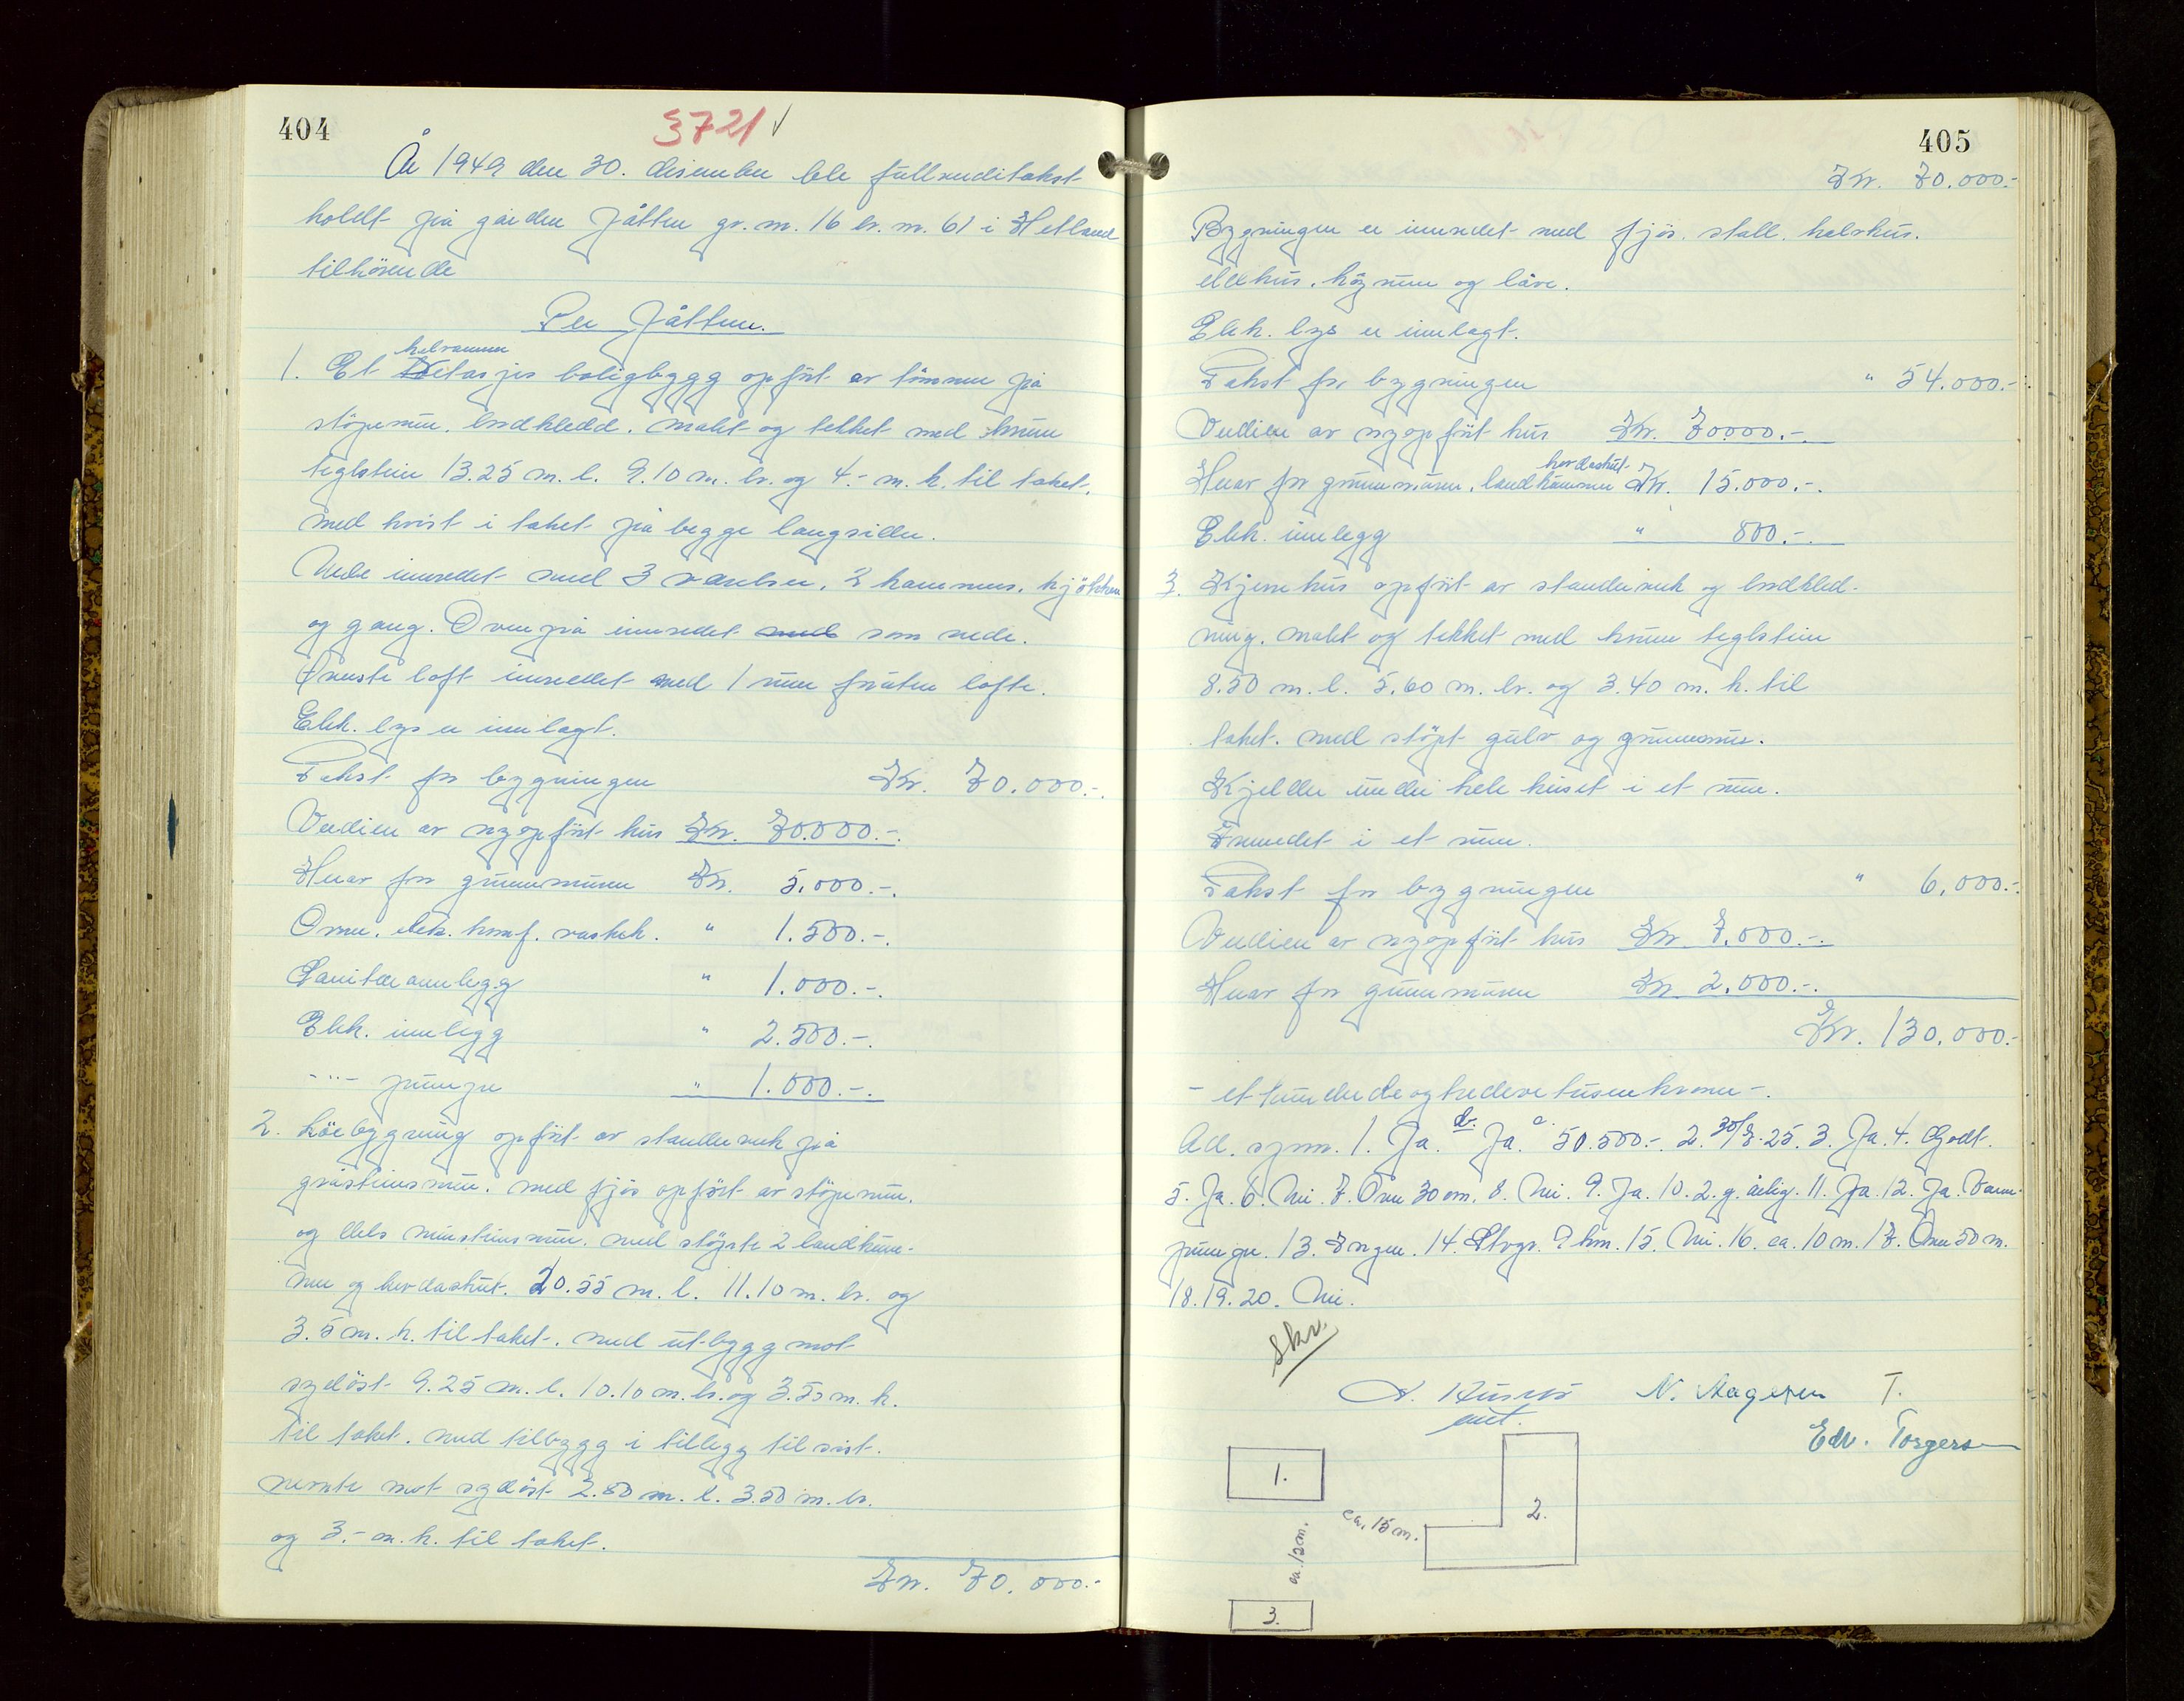 404
3721 ✓
År 1949 den 30. desember ble fullverditakst
holdt på gården Jåtten gr. nr. 16 br. nr. 61 i Hetland
tilhörende
Per Jåtten.
1. Et halvannen etasjes boligbygg opfört av tömmer på
stöpemur, bordkledd, malt og tekket med krum
teglstein 13.25 m. l. 9.10 m. br. og 4.- m. h. til taket,
med kvist i taket på begge langsider.
Nede innredet med 3 værelser, 2 kammers, kjökken
og gang. Ovenpå innredet som nede.
Överste loft innredet med 1 rum foruten lofte.
Elek. lys er innlagt.
Takst for bygningen Kr. 70.000.-
Verdien av nyopfört hus Kr. 70.000.-
Herav for grunnmuren Kr. 5.000.-
Ovner, elek. komf. vaskek. " 1.500.-
Sanitæranlegg " 1.000.-
Elek. innlegg " 2.500.-
-"- pumpe " 1.000.-
2. Löebygning opfört av standerverk på
gråsteinsmur, med fjös opfört av stöpemur,
og dels mursteinsmur, med stöpte 2 landkum-
mer og hordaskut. 20.55 m. l. 11.10 m. br. og
3.5 m. h. til taket, med utbygg mot
sydöst 9.25 m. l. 10.10 m. br. og 3.50 m. h.
til taket, med tilbygg i tillegg til sist-
nevnte mot sydöst 2.80 m. l. 3.50 m. br.
og 3.- m. h. til taket.
Kr. 70.000.-
405
Kr. 70.000.-
Bygningen er innredet med fjös, stall, kalvhus,
eldhus, höyrum og låve.
Elek. lys er innlagt.
Takst for bygningen " 54.000.-
Verdien av nyopfört hus Kr. 70000.-
Herav for grunnmuren, landkummer hordaskut Kr. 15.000.-
Elek. innlegg " 800.-
3. Kjernehus opfört av standerverk og bordkled-
ning, malt og tekket med krum teglstein
8.50 m. l. 5.60 m. br. og 3.40 m. h. til
taket, med stöpt gulv og grunnmur.
Kjelder under hele huset i et rum.
Innredet i et rum.
Takst for bygningen " 6.000.-
Verdien av nyopfört hus Kr. 7.000.-
Herav for grunnmuren Kr. 2.000.-
Kr. 130.000.-
- ethundredeogtredevetusenkroner -.
Ad. spm. 1. Ja. b. Ja. c. 50.500.- 2. 30/7-25. 3. Ja. 4. Godt.
5. Ja. 6. Nei. 7. Over 30 cm. 8. Nei. 9. Ja. 10. 2 g. årlig. 11. Ja. 12. Ja. Vann-
pumpe. 13. Ingen. 14. Stvgr. 9 km. 15. Nei. 16. ca. 10 m. 17. Over 50 m.
18. 19. 20. Nei.
Skr.
N. Aageren T.
Edv. Torgersen
1.
2.
3.
ca. 15 m.
ca. 12 m.